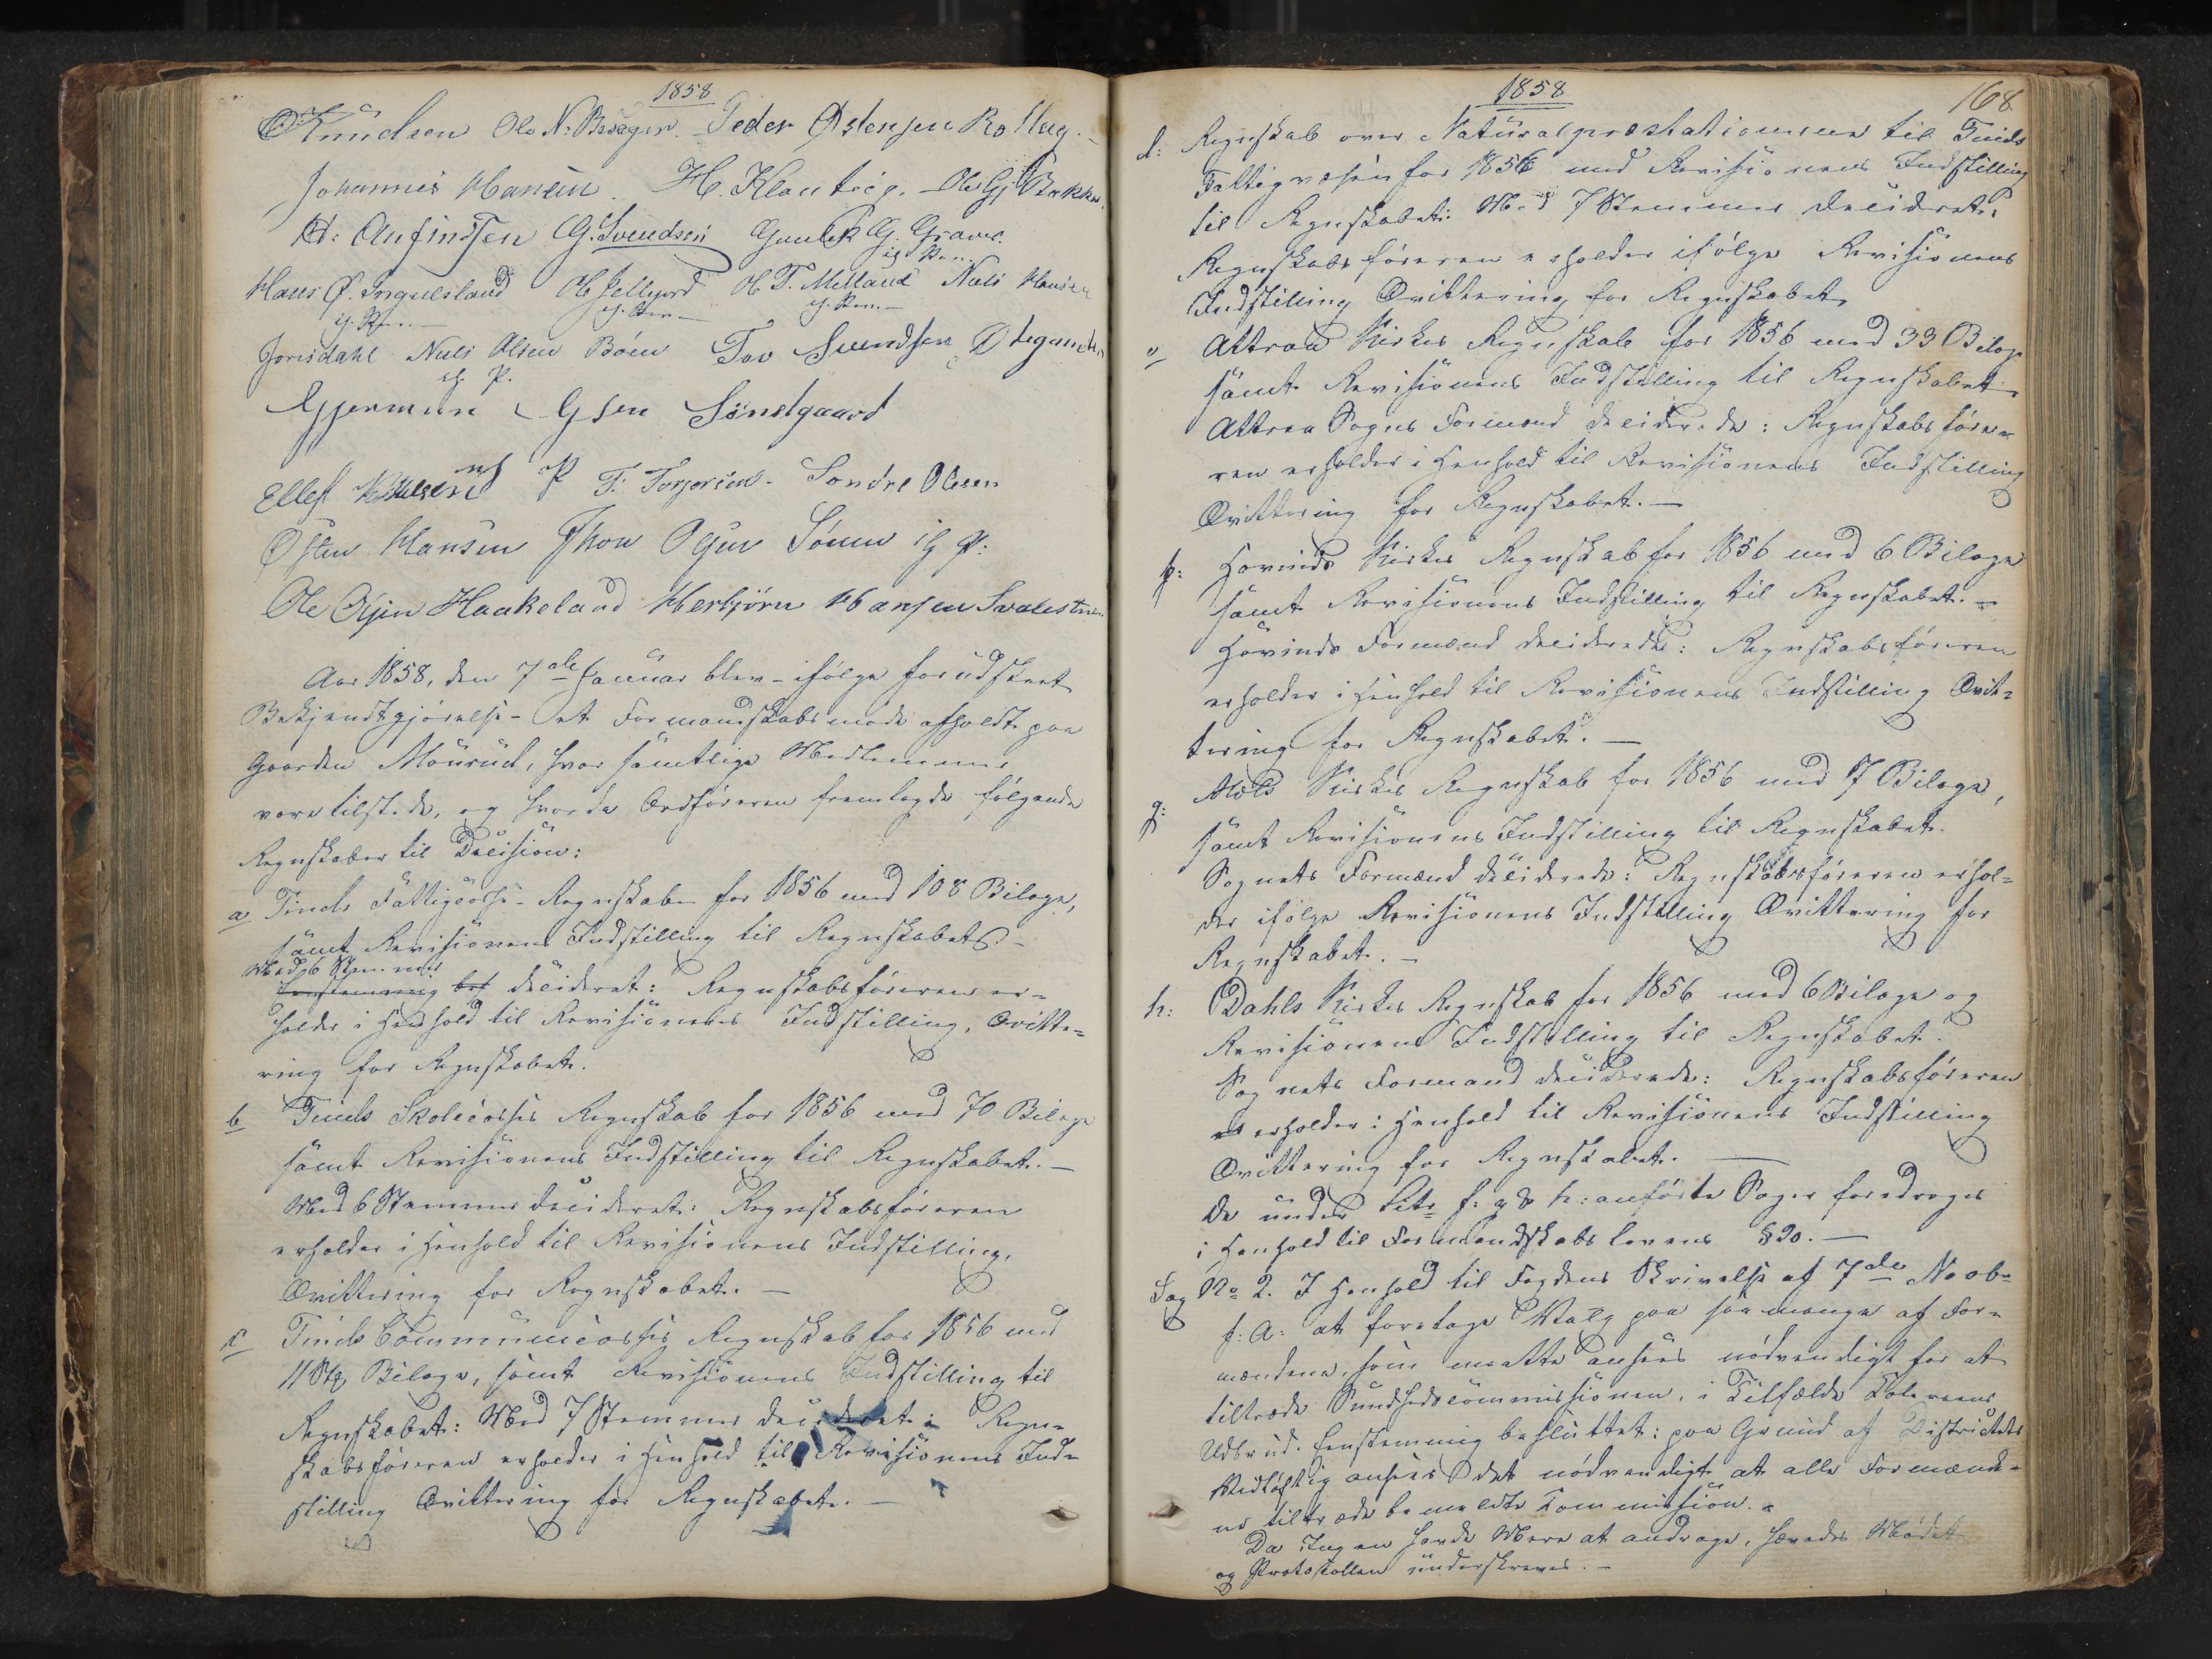 1858
O. Knudsen Ole N. Peder Østensen Rollag
Johannes Hansen. H. Ole Gj. Bakka
H: Anfindsen G. Svendsen Gunlek G. Graver
Hans Ø. Ingulsland H. T. Melland Niels Hansen
Niels Olsen Bøen Tov Svendsen
Gjermun Søndgaard
Ellef T. Torjersen. Sondre Olesen
Østen Hansen Jhon Olsen i P:
Ole Olsen Haakeland Herbjørn Hansen
Aar 1858, den 7de Januar blev - ifølge forudskeet
Bekjendtgjørelse - et Formandskabsmøde afholdt paa
Gaarden Mourud, hvor samtlige Medlemmer
vare tilstede, og hvorda Ordføreren fremlagde følgende
Regnskaber til Decision:
a Tinds Fattigcasse-Regnskab for 1856 med 108 Bilage,
samt Revisionens Indstilling til Regnskabet -
Med 6 Stemmer
Eenstemmig decideret: Regnskabsføreren er-
holder i Henhold til Revisionens Indstilling, Qvitte-
ring for Regnskabet.
b Tinds Skolecasses Regnskab for 1856 med 70 Bilage
samt Revisionens Indstilling til Regnskabet. -
Med 6 Stemmer decideret: Regnskabsføreren
erholder i Henhold til Revisionens Indstilling,
Qvittering for Regnskabet. -
c Tinds Communecasses Regnskab for 1856 med
11 Stk Bilage, samt Revisionens Indstilling til
Regnskabet: Med 7 Stemmer decideret: Regn-
skabsføreren erholder i Henhold til Revisionens Ind-
stilling Qvittering for Regnskabet. -
1858
168
d: Regnskab over Naturalpræstationerne til Tinds
Fattigvæsen for 1856 med Revisionens Indstilling
til Regnskabet: Med 7 Stemmer decideret:
Regnskabsføreren erholder ifølge Revisionens
Indstilling Qvittering for Regnskabet.
e Attraa Kirkes Regnskab for 1856 med 33 Bilage
samt Revisionens Indstilling til Regnskabet.
Attraa Sogns Formænd deciderede: Regnskabsføre-
ren erholder i Henhold til Revisionens Indstilling
Qvittering for Regnskabet. -
f: Hovinds Kirkes Regnskab for 1856 med 6 Bilage
samt Revisionens Indstilling til Regnskabet. -
Hovinds Formænd deciderede: Regnskabsføreren
erholder i Henhold til Revisionens Indstilling Qvit-
tering for Regnskabet. -
g: Mæls Kirkes Regnskab for 1856 med 7 Bilage,
samt Revisionens Indstilling til Regnskabet.
Sognets Formænd deciderede: Regnskabsføreren erhol-
der ifølge Revisionens Indstilling Qvittering for
Regnskabet. -
h: Dahls Kirkes Regnskab for 1856 med 6 Bilage og
Revisionens Indstilling til Regnskabet.
Sognets Formænd deciderede: Regnskabsføreren
erholder i Henhold til Revisionens Indstilling
Qvittering for Regnskabet. -
De under Litr f: g & h: anførte Sager foredroges
i Henhold til Formandskabslovens § 20. -
Sag No 2. I Henhold til Fogdens Skrivelse af 7de Novbr
f: A: at foretage Valg paa saa mange af For-
mændene, som maatte ansees nødvendigt for at
tiltræde Sundhedscommissionen, i Tilfælde Coleraens
Udbrud. Eenstemmig besluttet: paa Grund af Districtets
Vidløftig ansees det nødvendigt at alle Formænde-
ne tiltræde bemeldte Kommission. -
Da Ingen havde Mere at andrage, hævedes Mødet
og Protokollen underskreves. -